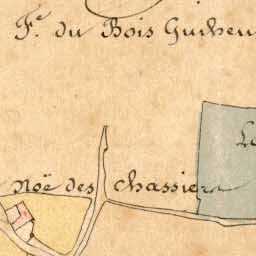 Fe. du Bois Guiheu
Noë des Chassiers